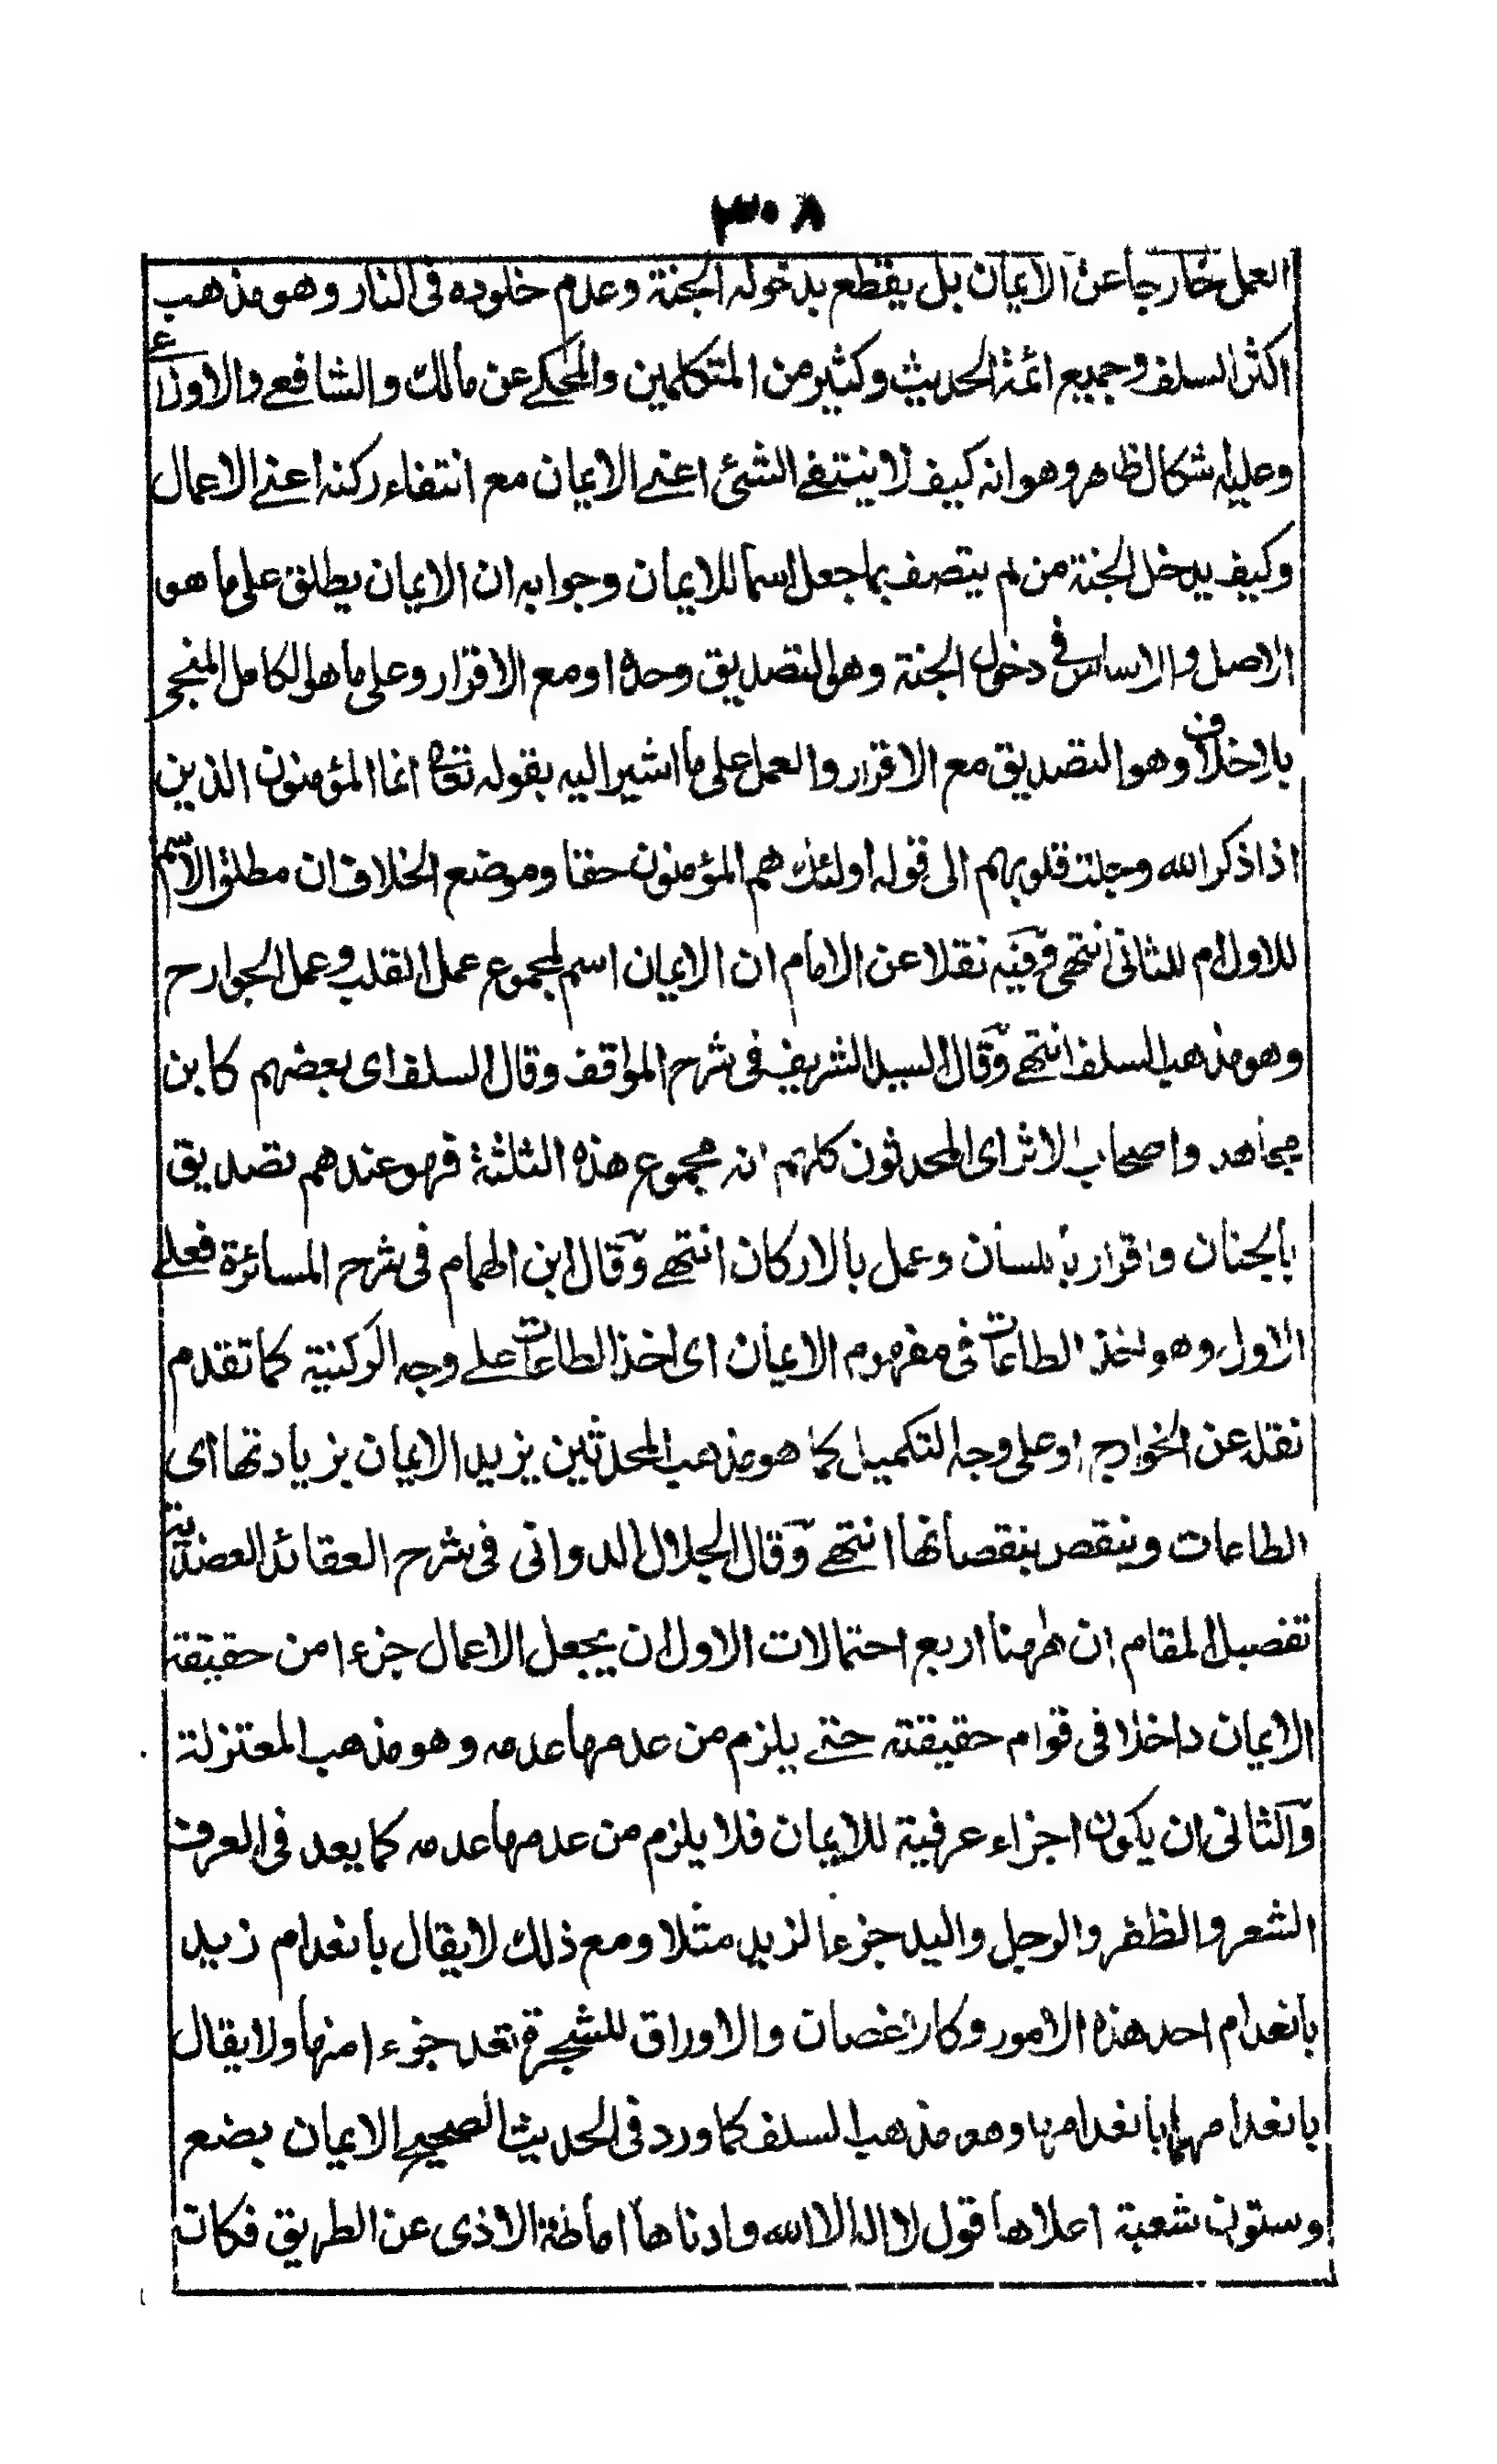 ٣٠٨
العمل خارجا عن الايمان بل يقطع بدخوله الجنة وعدم خلوده فى النار وهو مذهب
اكثر السلف وجميع ائمة الحديث وكثير من المتكلمين والمحكے عن مالك والشافعے والاوزاعے
وعليه اشكال ظاهر وهو انه كيف لا ينتفے الشئ اعنے الايمان مع انتفاء ركنه اعنے الاعمال
وكيف يدخل الجنة من لم يتصف بما جعل اسما للايمان وجوابه ان الايمان يطلق على ما هو
الاصل والاساس فى دخول الجنة وهو التصديق وحده او مع الاقرار وعلى ما هو الكامل المنجى
بلا خلاف وهو التصديق مع الاقرار والعمل على ما اشير اليه بقوله تعالى انما المؤمنون الذين
اذا ذكر الله وجلت قلوبهم الى قوله اولئك هم المؤمنون حقا وموضع الخلاف ان مطلق الاسم
للاول ام للثانى انتهى وفيه نقلا عن الامام ان الايمان اسم لمجموع عمل القلب وعمل الجوارح
وهو مذهب السلف انتهے وقال السيد الشريف فى شرح المواقف وقال السلف اى بعضهم كابن
مجاهد واصحاب الاثر اى المحدثون كلهم انه مجموع هذه الثلثة فهو عندهم تصديق
بالجنان واقرار باللسان وعمل بالاركان انتهے وقال ابن الهمام فى شرح المسائرة فعلے
الاول وهو اخذ الطاعات فى مفهوم الايمان اى اخذ الطاعات علے وجه الركنية كما تقدم
نقله عن الخوارج او على وجه التكميل كما هو مذهب المحدثين يزيد الايمان بزيادتها اى
الطاعات وينقص بنقصانها انتهے وقال الجلال الدوانى فى شرح العقائد العضدية
تفصيل المقام ان ههنا اربع احتمالات الاول ان يجعل الاعمال جزءا من حقيقة
الايمان داخلا فى قوام حقيقته حتے يلزم من عدمها عدمه وهو مذهب المعتزلة
والثانى ان يكون اجزاء عرفية للايمان فلا يلزم من عدمها عدمه كما يعد فى العرف
الشعر والظفر والرجل واليد جزءا لزيد مثلا ومع ذلك لا يقال بانعدام زيد
بانعدام احد هذه الامور وكالاغصان والاوراق للشجرة تعد جزءا منها ولا يقال
بانعدامها بانعدامها وهو مذهب السلف كما ورد فى الحديث الصحيح الايمان بضع
وستون شعبة اعلاها قول لا اله الا الله وادناها اماطة الاذى عن الطريق فكان